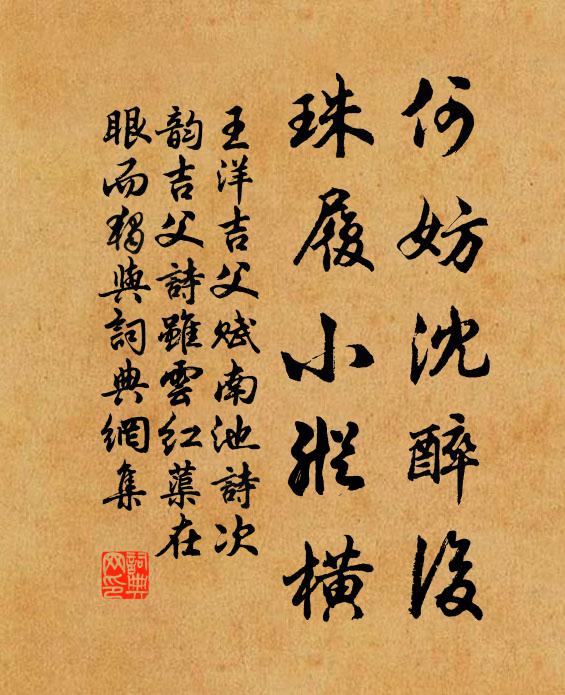 何妨沈醉後
珠履小縱橫
王洋吉父賦南池詩次
韵吉父詩雖雲紅蕖在
眼而獨與詞典網集
詞典网印